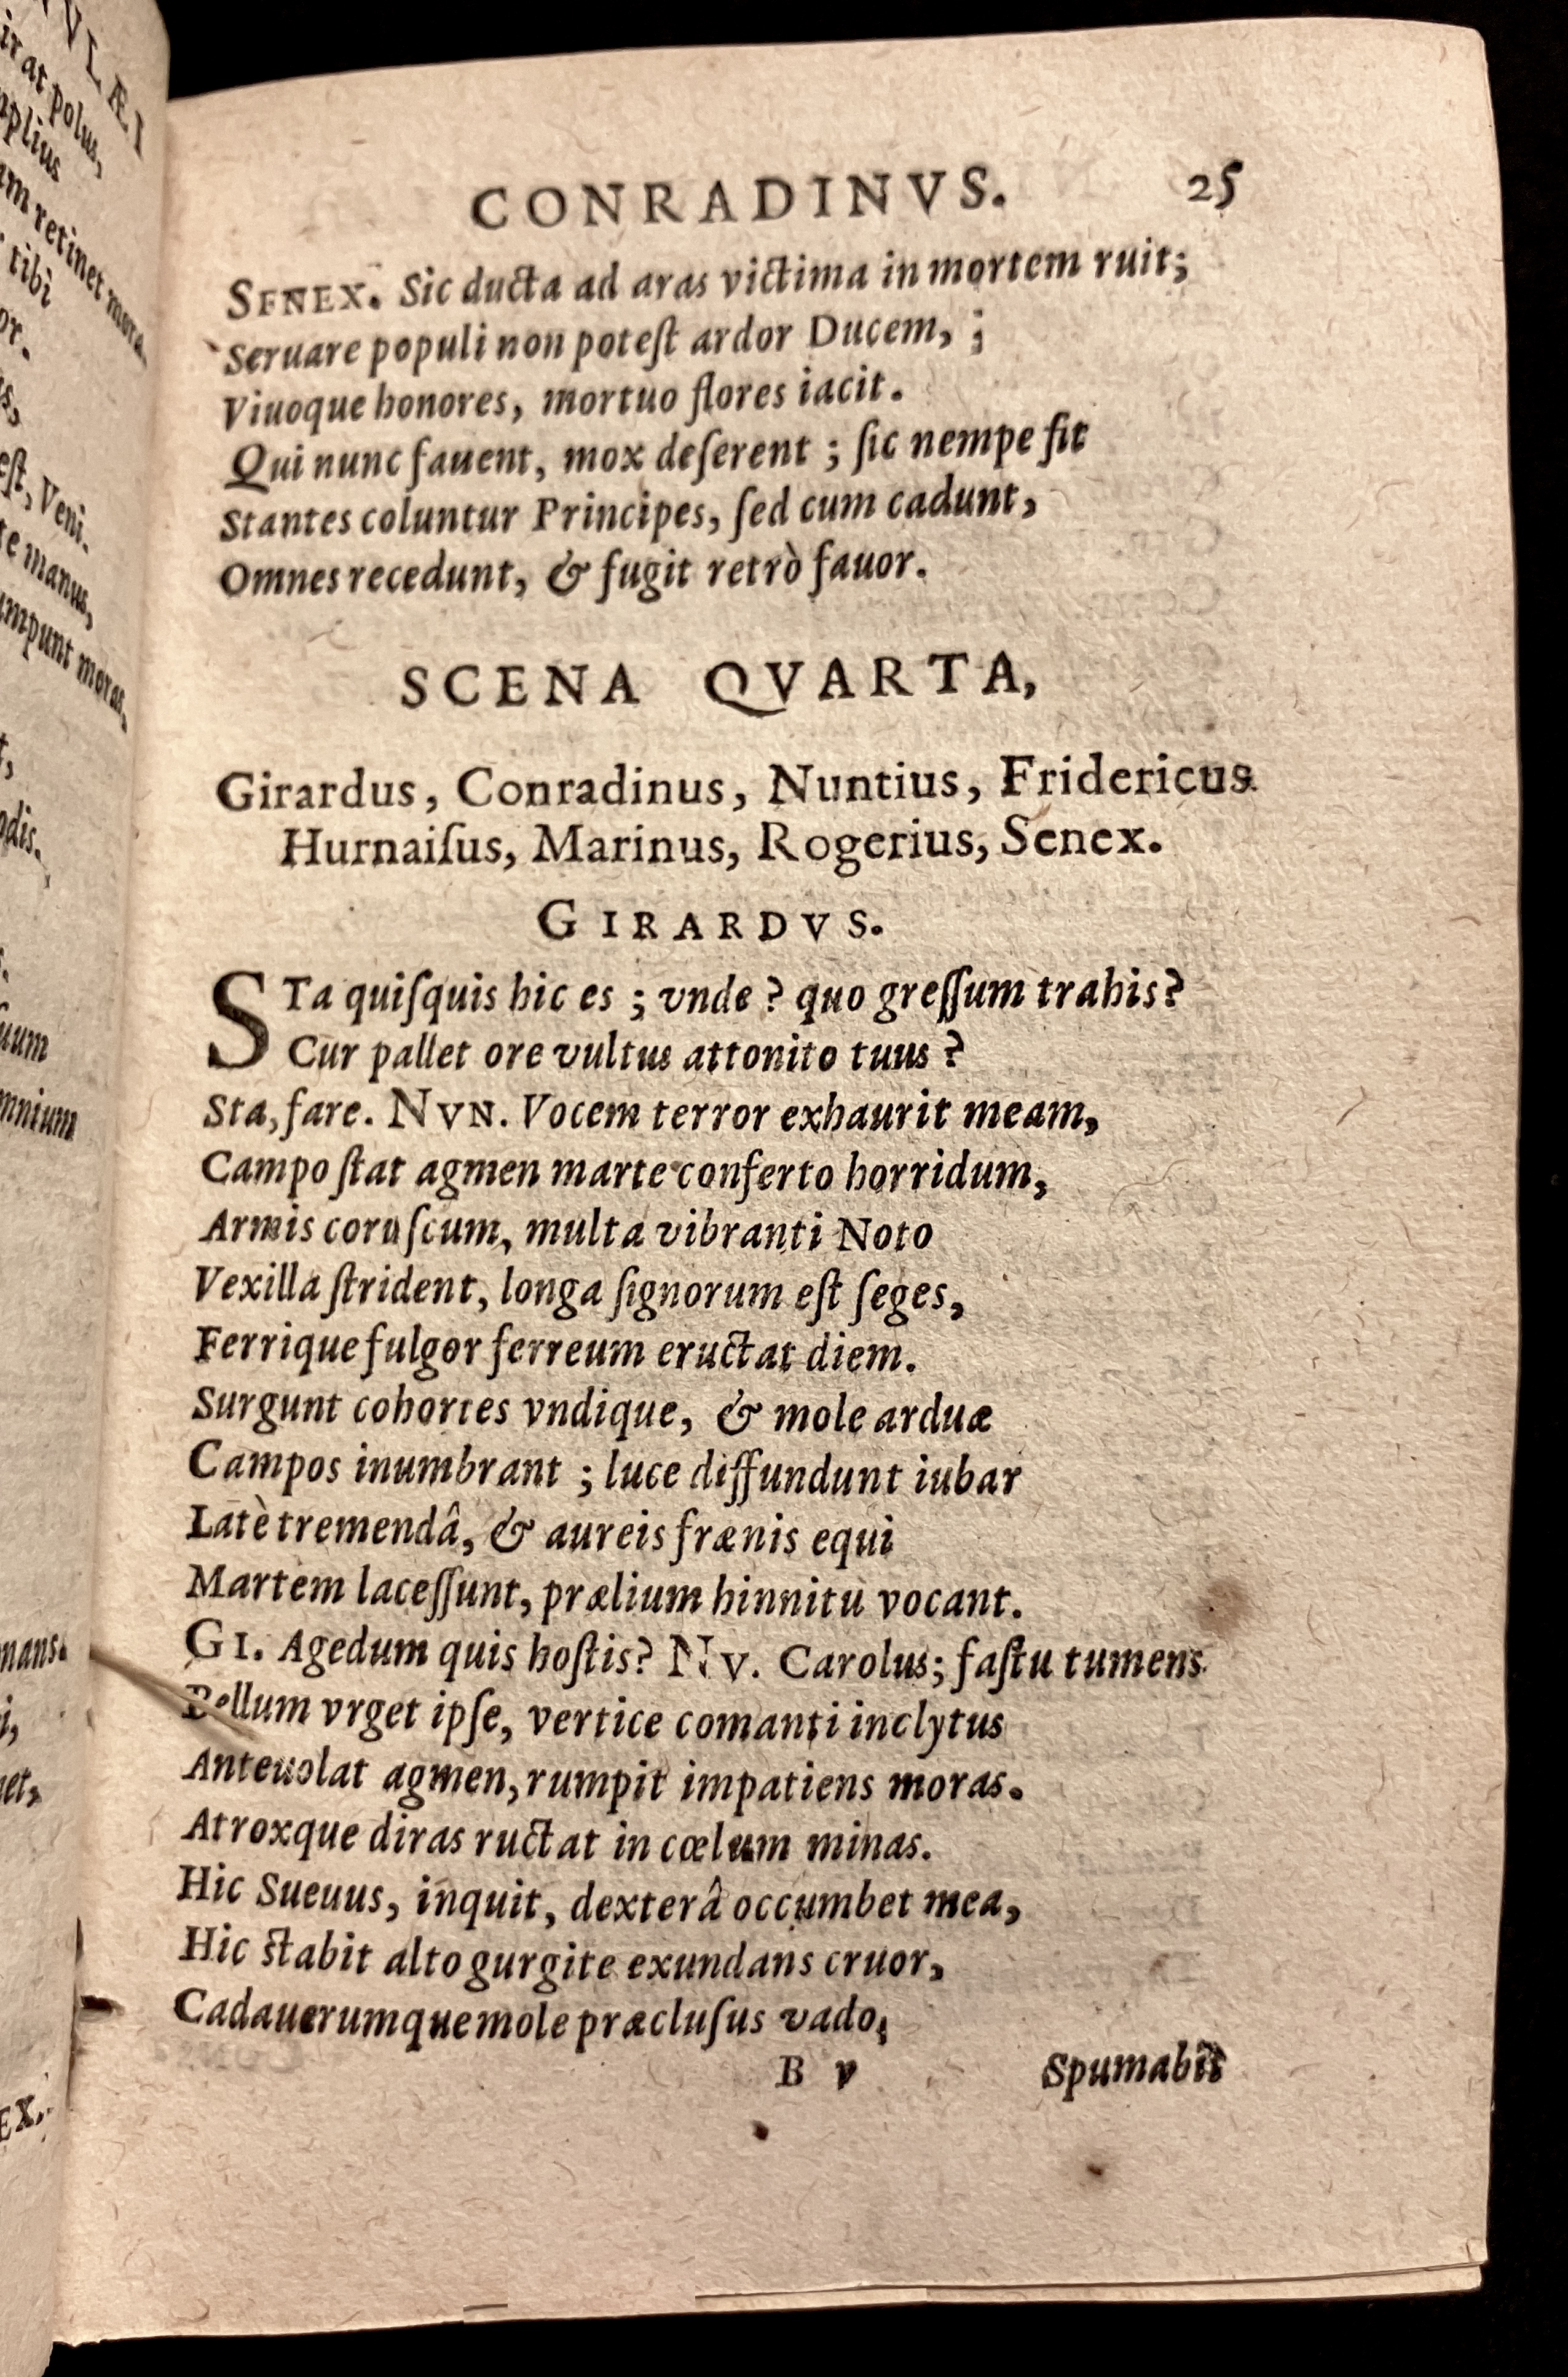 VLÆI
ir at polus,
mplius
am retinet mora.
tibi
or.
est, Veni.
te manus,
umpunt moras,
odis.
suum
mnium
EX.
CONRADINVS. 25
SENEX. Sic ducta ad aras victima in mortem ruit;
Seruare populi non poteſt ardor Ducem, ;
Viuoque honores, mortuo flores iacit.
Qui nunc fauent, mox deſerent ; ſic nempe fit
Stantes coluntur Principes, ſed cum cadunt,
Omnes recedunt, & fugit retrò fauor.
SCENA QVARTA,
Girardus, Conradinus, Nuntius, Fridericus
Hurnaiſus, Marinus, Rogerius, Senex.
GIRARDVS.
STa quiſquis hic es ; vnde ? quo greſſum trahis?
Cur pallet ore vultus attonito tuus ?
Sta, fare. NVN. Vocem terror exhaurit meam,
Campo ſtat agmen marte conferto horridum,
Armis coruſcum, multa vibranti Noto
Vexilla ſtrident, longa ſignorum eſt ſeges,
Ferrique fulgor ferreum eructat diem.
Surgunt cohortes vndique, & mole arduæ
Campos inumbrant ; luce diffundunt iubar
Latè tremendâ, & aureis frænis equi
Martem laceſſunt, prælium hinnitu vocant.
GI. Agedum quis hoſtis? NV. Carolus; faſtu tumens
Bellum vrget ipſe, vertice comanti inclytus
Anteuolat agmen, rumpit impatiens moras.
Atroxque diras ructat in cœlum minas.
Hic Sueuus, inquit, dexterâ occumbet mea,
Hic ſtabit alto gurgite exundans cruor,
Cadauerumque mole præcluſus vado,
B v Spumabit